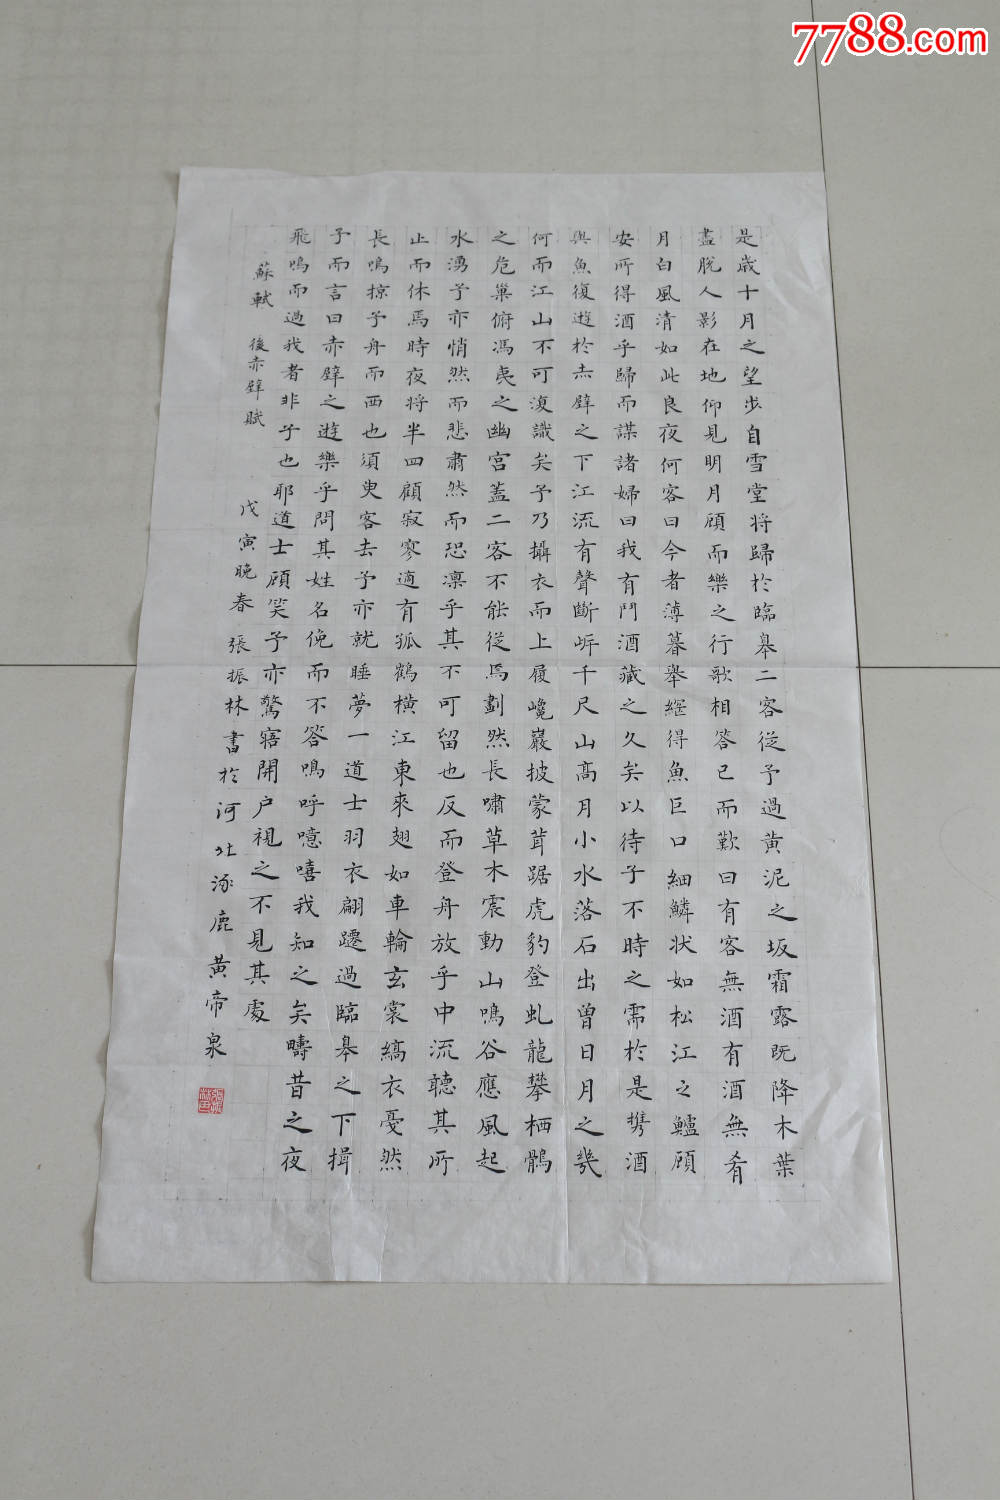 7788.com
是歲十月之望步自雪堂將歸於臨皋二客從予過黃泥之坂霜露既降木葉
盡脫人影在地仰見明月顧而樂之行歌相答已而歎曰有客無酒有酒無肴
月白風清如此良夜何客曰今者薄暮舉網得魚巨口細鱗狀如松江之鱸顧
安所得酒乎歸而謀諸婦曰我有鬥酒藏之久矣以待子不時之需於是携酒
與魚復遊於赤壁之下江流有聲斷岸千尺山高月小水落石出曾日月之幾
何而江山不可復識矣予乃攝衣而上履巉巖披蒙茸踞虎豹登虬龍攀栖鶻
之危巢俯馮夷之幽宮蓋二客不能從焉劃然長嘯草木震動山鳴谷應風起
水湧予亦悄然而悲肅然而恐凛乎其不可留也反而登舟放乎中流聽其所
止而休焉時夜将半四顧寂寥適有孤鶴橫江東來翅如車輪玄裳縞衣戛然
長鳴掠予舟而西也須臾客去予亦就睡夢一道士羽衣翩躚過臨皋之下揖
予而言曰赤壁之遊樂乎問其姓名俛而不答嗚呼噫嘻我知之矣疇昔之夜
飛鳴而過我者非子也耶道士顧笑予亦驚寤開户視之不見其處
蘇軾 後赤壁賦 戊寅晚春 張振林書於河北涿鹿黄帝泉